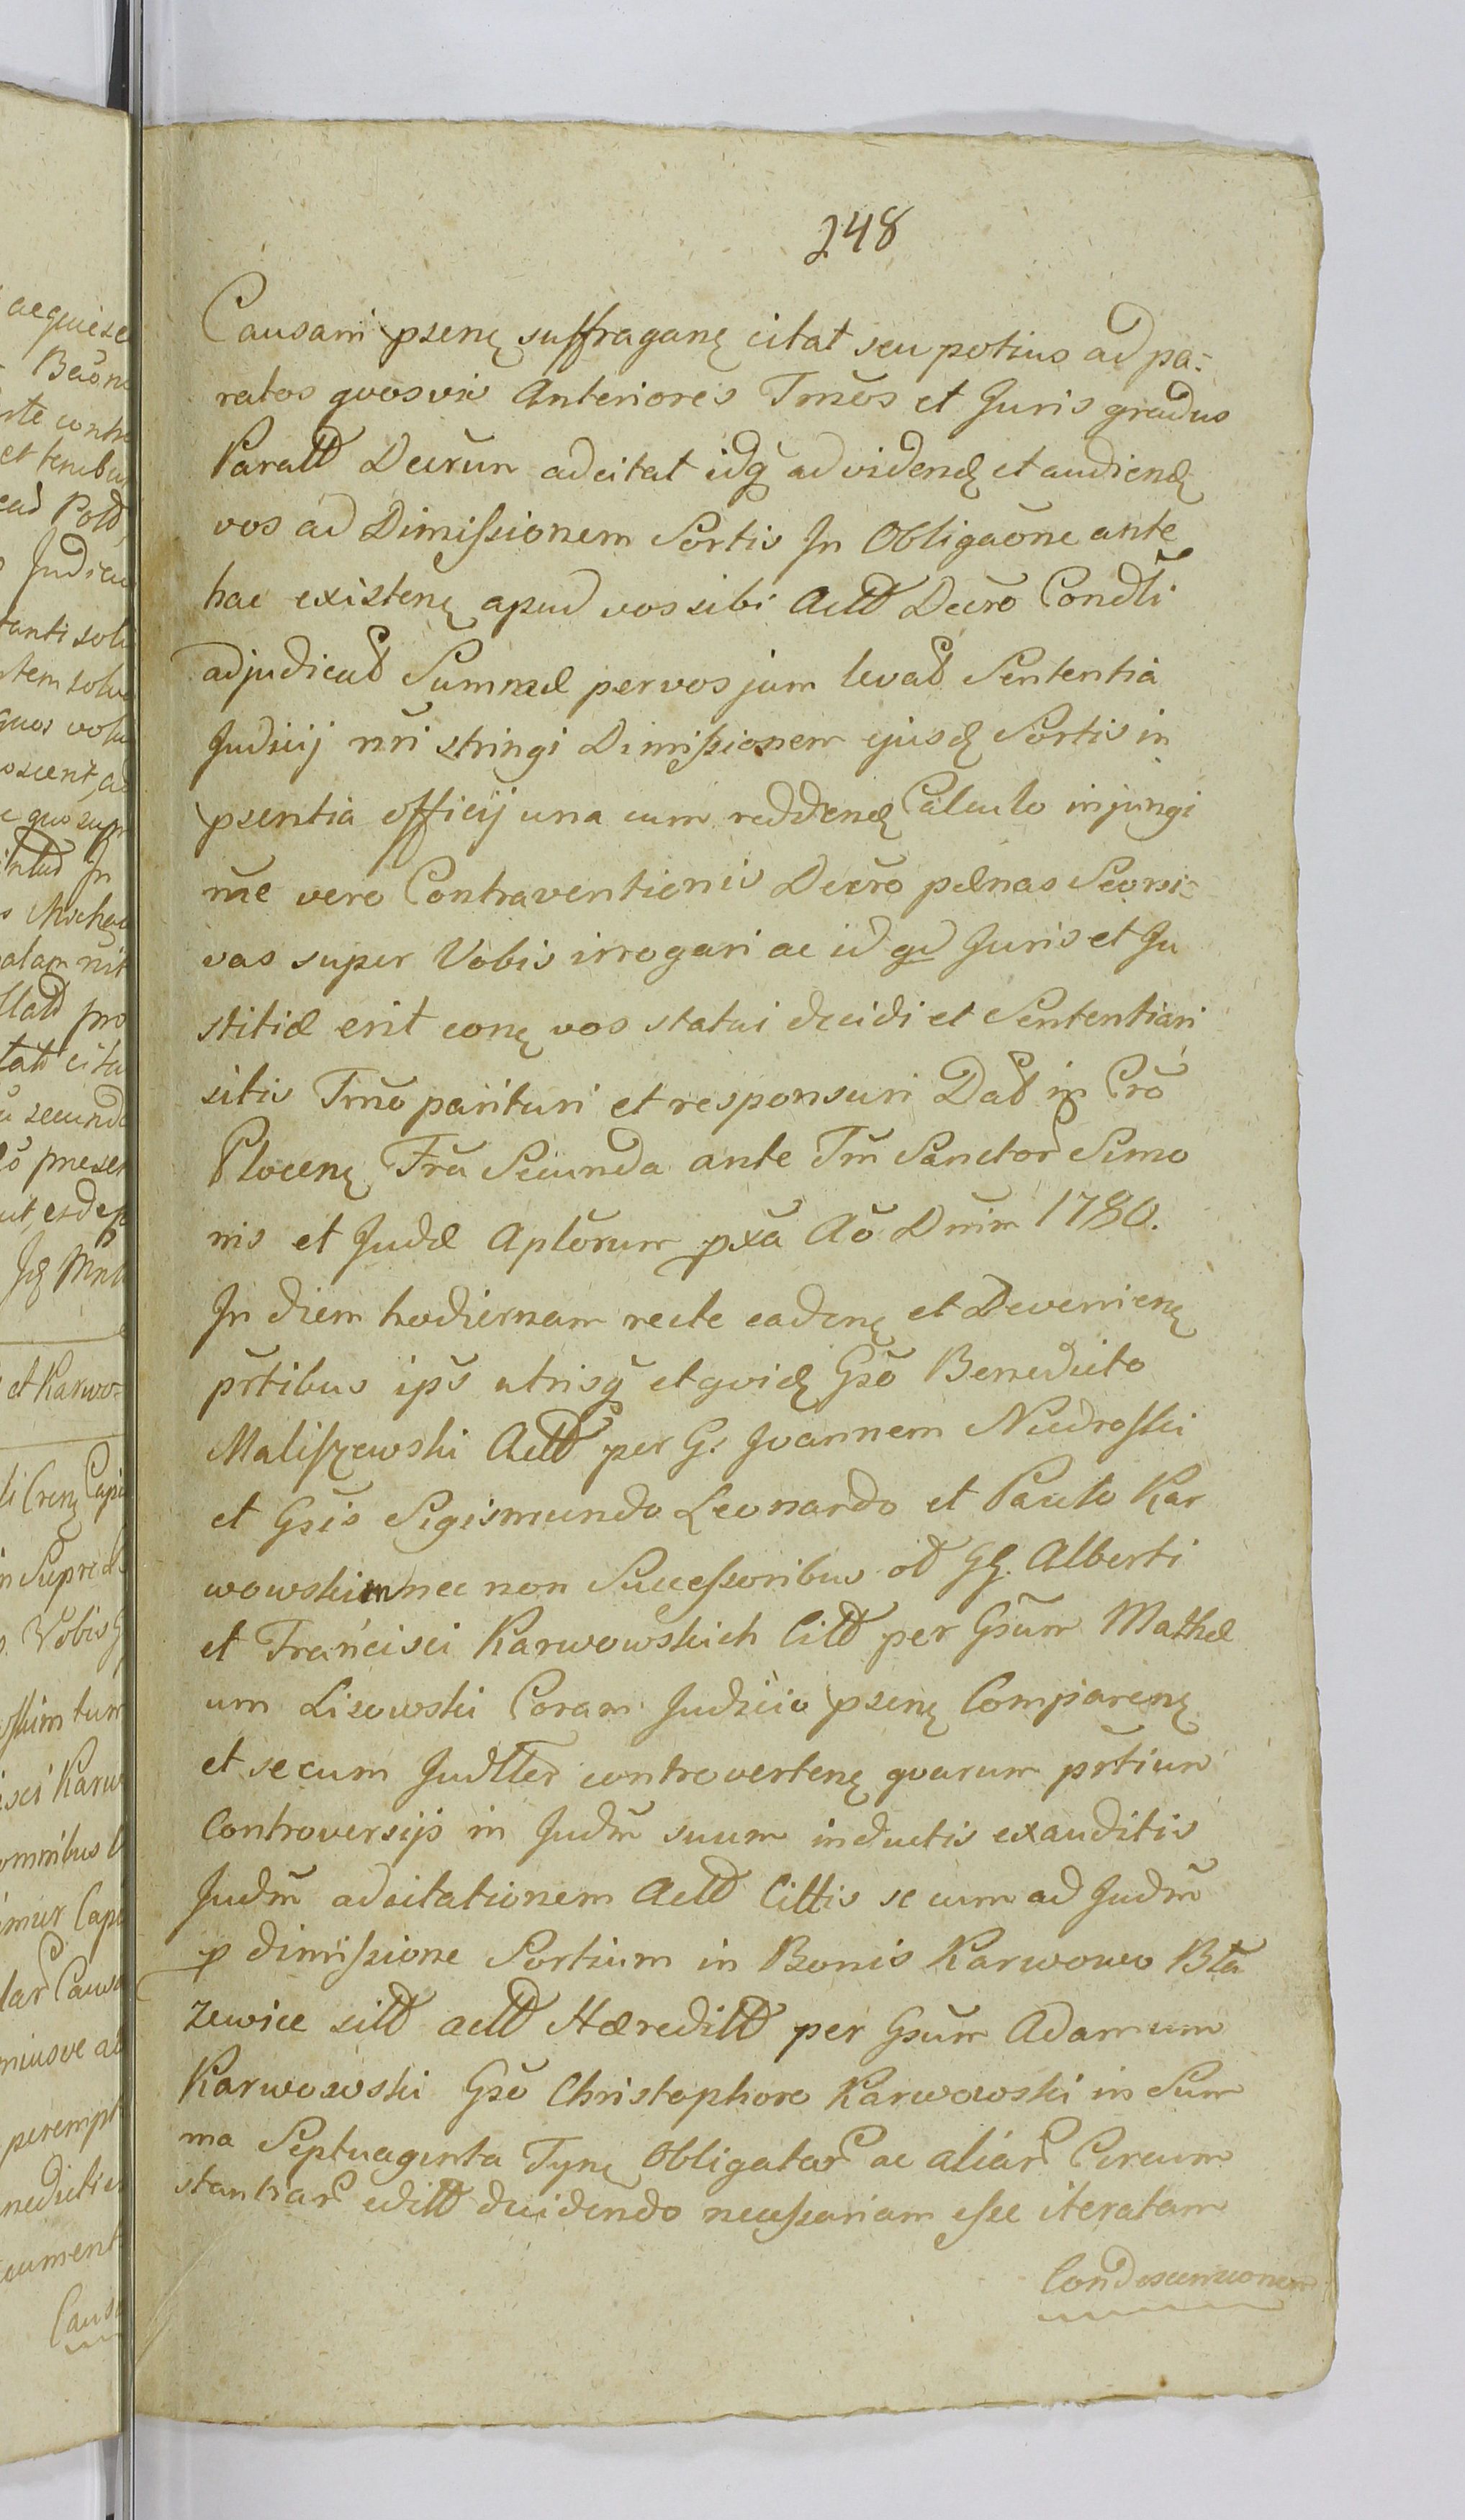 248
Causam psenę suffraganę citat seu potius ad pa:
ratos quosvis Anteriores Tmĕos et Juris gradus
Paratt Decrūm adcitat idq̄ ad videnđ et audienđ
vos ad Dimissionem Sortis In Obligaōne ante
hac existenę apud vos sibi Actt Decrō Condłi
adjudicat Summæ per vos jam levat Sententia
Judicij nr̄i stringi Dimissionem ejusđ Sortis in
psentia officij una cum reddenđ Calculo injungi
rn̄e vero Contraventionis Decrō pœnas Seorsi-
vas super Vobis irrogari ac id qd Juris et Ju
stitiæ erit conę vos statui decidi et Sententiari
sitis Tmō parituri et responsuri Dat in Crō
Plocenę Frā Secunda ante Fm̄ Sanctor Simo
nis et Judæ Aplōrum pxa Aō Dnīm 1780.
In diem hodiernam recte cadenę et Devenienę
pr̄tibus ips̄ utrisq̄ et quiđ Gsō Benedicto
Maliszewski Actt per G. Joannem Niedroski
et Gsīs Sigismundo Leonardo et Paulo Kar
wowskim nec non Successoribus ol GG. Alberti
et Francisci Karwowskich Citt per Gsūm Mathæ
um Lisowski Coram Judicio psenę Comparenę
et secum Judtter controvertenę quarum pr̄tium
Controversijs in Judm̄ suum inductis exauditis
Judm̄ ad citationem Actt Cittis secum ad Judm̄
p dimissione Sortium in Bonis Karwowo Bła
zewice sitt actt Hæreditt per Gsūm Adamum
Karwowski Gsō Christophoro Karwowski in Sum
ma Septuaginta Tynę Obligatar ac aliar Circum
stantiar editt decidendo necessariam esse iteratam
Condescensionem